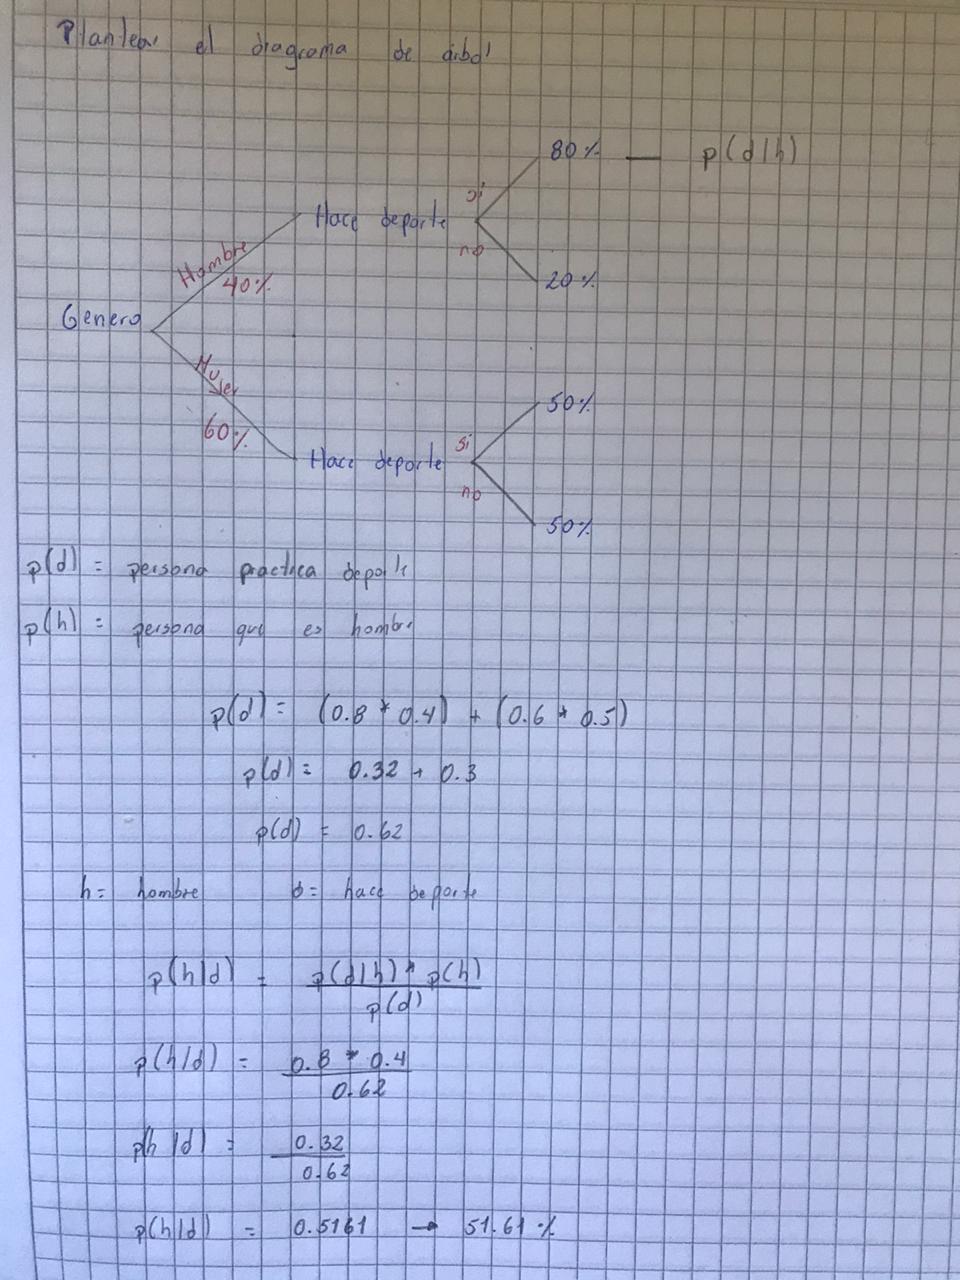 Plantear el diagrama de árbol
80% — p(d/h)
si
Hace deporte
no
Hombre
40%
20%
Genero
Mujer
50%
60%
si
Hace deporte
no
50%
p(d) = persona practica deporte
p(h) = persona que es hombre
p(d) = (0.8 * 0.4) + (0.6 * 0.5)
p(d) = 0.32 + 0.3
p(d) = 0.62
h = hombre d = hace deporte
p(h/d) = p(d/h) * p(h)
p(d)
p(h/d) = 0.8 * 0.4
0.62
p(h/d) = 0.32
0.62
p(h/d) = 0.5161 → 51.61 %